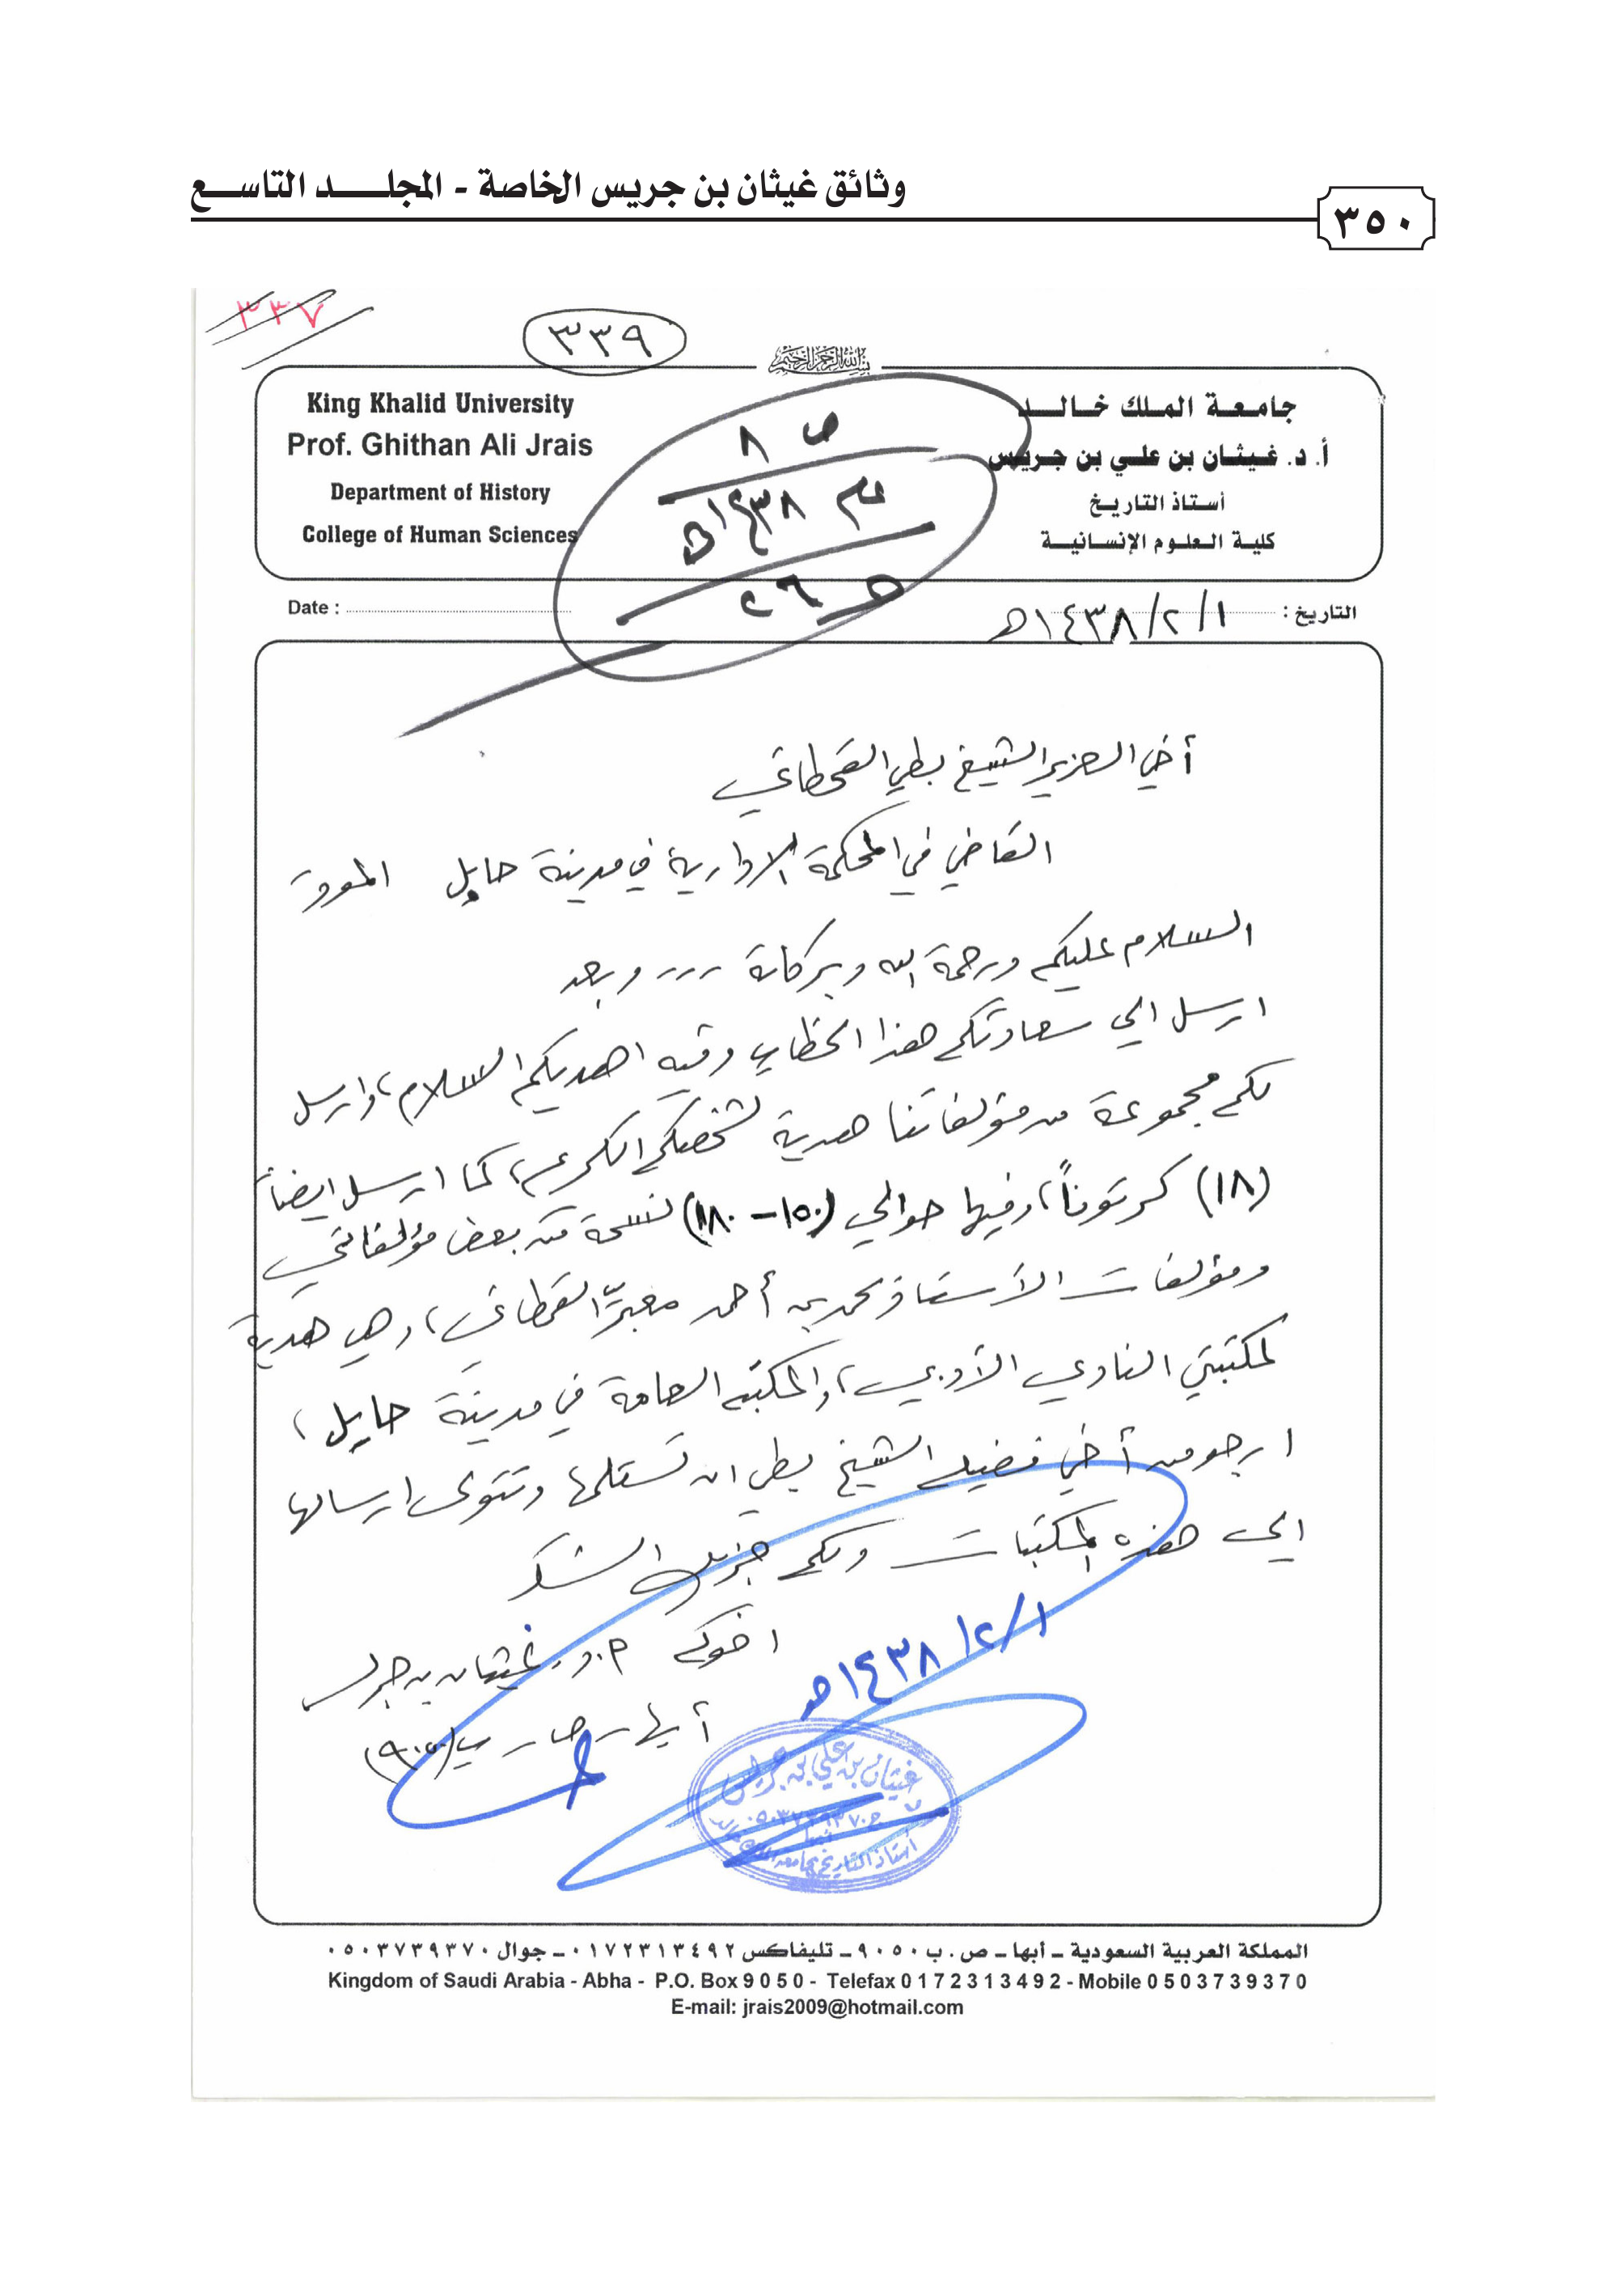 وثائق غيثان بن جريس الخاصة - المجلد التاسع
٣٥٠
٣٣٧
٣٣٩
بسم الله الرحمن الرحيم
King Khalid University
Prof. Ghithan Ali Jrais
Department of History
College of Human Sciences
جامعة الملك خالد
أ. د. غيثان بن علي بن جريس
أستاذ التاريخ
كلية العلوم الإنسانية
ص ٨
١٤٣٨هـ
٢٦
Date :
التاريخ : ١/٢/١٤٣٨هـ
أخي العزيز الشيخ بطي القحطاني
القاضي في المحكمة الإدارية في مدينة حايل الموقر
السلام عليكم ورحمة الله وبركاته ... وبعد
ارسل الى سعادتكم هذا الخطاب وفيه اهديكم السلام، وارسل
لكم مجموعة من مؤلفاتنا هدية لشخصكم الكريم، كما ارسل ايضاً
(١٨) كرتوناً، وفيها حوالي (١٥٠-١٨٠) نسخة من بعض مؤلفاتي
ومؤلفات الأستاذ محمد بن أحمد معبّر القحطاني، وهي هدية
لمكتبتي النادي الأدبي، والمكتبه العامة في مدينة حايل،
ارجو من أخي فضيلة الشيخ بطي ان تستلمها وتتولى ارسالها
الى هذه المكتبات ولكم جزيل الشكر
اخوكم أ.د. غيثان بن جريس
أبها - ص.ب (٩٠٥٠)
١/٢/١٤٣٨هـ
غيثان بن علي بن جريس
ج ٠٥٠٣٧٣٩٣٧٠
أبها
أستاذ التاريخ بجامعة الملك خالد
المملكة العربية السعودية - أبها - ص . ب ٩٠٥٠ - تليفاكس ٠١٧٢٣١٣٤٩٢ - جوال ٠٥٠٣٧٣٩٣٧٠
Kingdom of Saudi Arabia - Abha - P.O. Box 9050 - Telefax 0172313492 - Mobile 0503739370
E-mail: jrais2009@hotmail.com